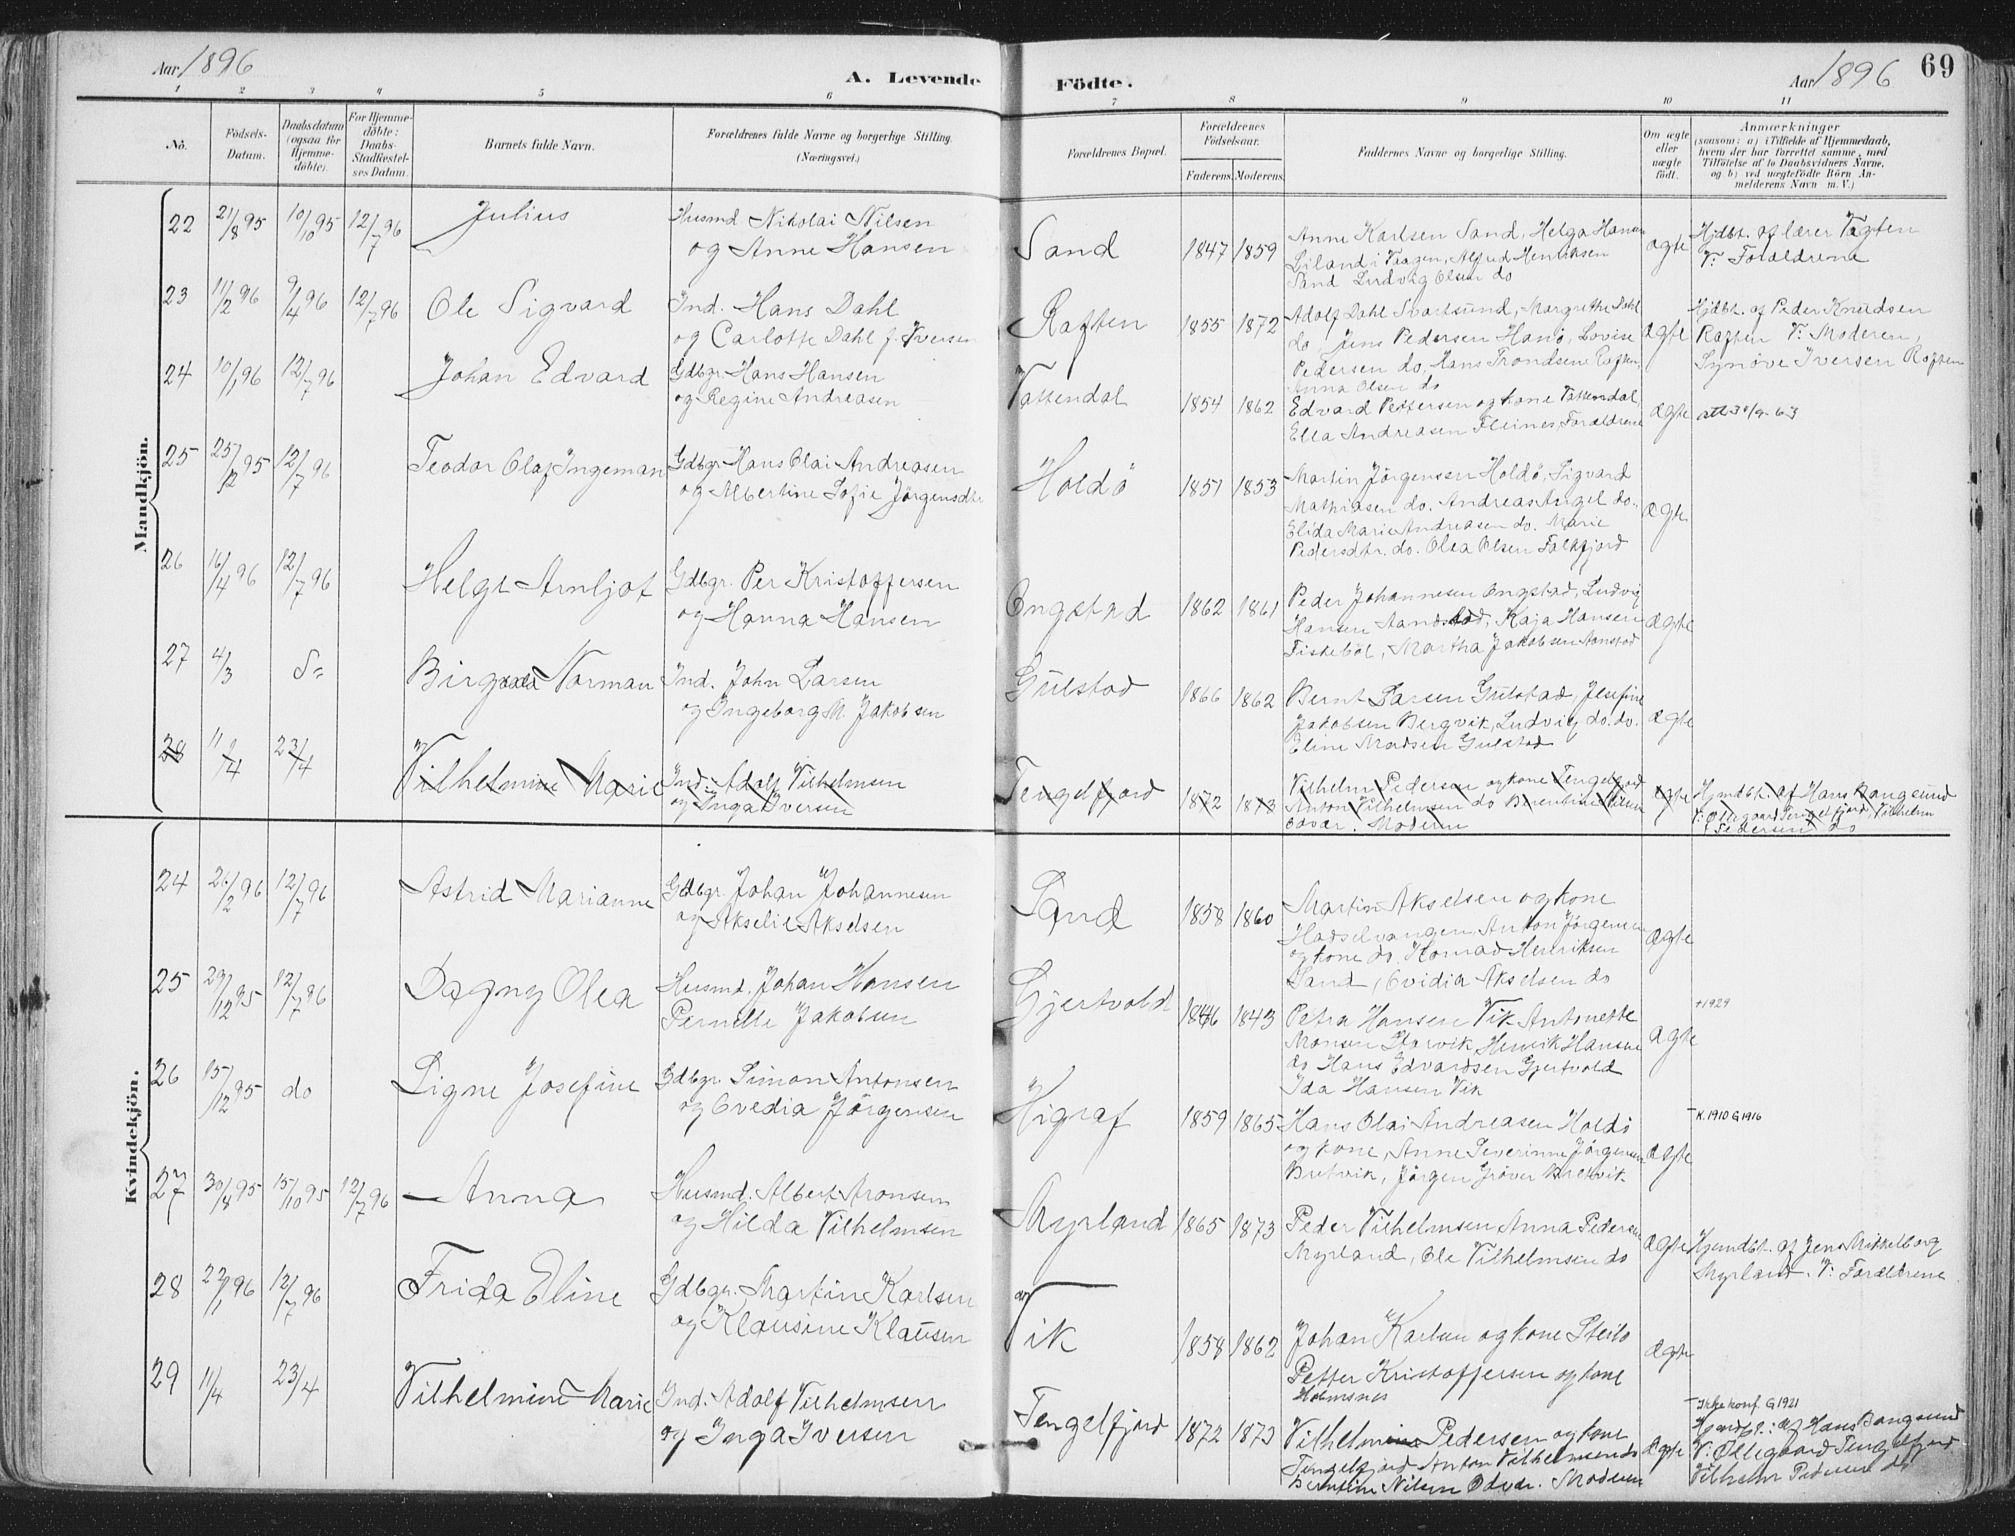 Aar 1896
A. Levende Födte.
Aar 1896
69
1 2 3 4 5 6 7 8 9 10 11
No.
Födsels-Datum.
Daabsdatum (ogsaa for Hjemmedöbte).
For Hjemmedöbte: Daabs-Stadfæstelses Datum.
Barnets fulde Navn.
Forældrenes fulde Navne og borgerlige Stilling. (Næringsvei.)
Forældrenes Bopæl.
Forældrenes Födselsaar.
Faderens. Moderens.
Faddernes Navne og borgerlige Stilling.
Om ægte eller uægte födt.
Anmærkninger
(saasom: a) i Tilfælde af Hjemmedaab, hvem der har forrettet samme, med Tilföielse af to Daabsvidners Navne, og b) ved uægtefödte Börn Anmelderens Navn m. V.)
Mandkjön.
22 21/8 95 10/10 95 12/7 96 Julius
Husmd Nikolai Nilsen
og Anne Hansen
Sand 1847 1859
Anne Karlsen Sand, Helga Hansen
Liland i Vaagen, Alfred Henriksen
Sand Ludvig Olsen do
ægte
Hjdbt. af lærer Vogten
V: Forældrene
23 11/2 96 9/4 96 12/7 96 Ole Sigvard
Ind. Hans Dahl
og Carlotte Dahl f. Iversen
Raften 1855 1872
Adolf Dahl Svartsund, Margrethe Dahl
do Jens Pedersen Hanø, Lovise
Pedersen do, Hans Trondsen Raften,
Anna Olsen do
ægte
Hjdbt. af Peder Knudsen
Raften V: Moderen,
Synøve Iversen Raften
24 10/1 96 12/7 96 Johan Edvard
Gdbgr. Hans Hansen
og Regine Andreasen
Vattendal 1854 1862
Edvard Pettersen og kone Vattendal,
Ella Andreasen Fleines, Forældrene
ægte
att 30/9-63
25 25/12 95 12/7 96 Teodor Olaf Ingeman
Gdbgr. Hans Olai Andreasen
og Albertine Sofie Jørgensdtr
Holdö 1851 1853
Martin Jørgensen Holdö, Sigvard
Mathiasen do. Andreas Angel do.
Elida Marie Andreasen do. Marie
Pedersdtr. do. Olea Olsen Falkfjord
ægte
26 16/4 96 12/7 96 Helge Arnljot
Gdbgr. Per Kristoffersen
og Hanna Hansen
Ongstad 1862 1861
Peder Johannesen Ongstad, Ludvig
Hansen Aandstad, Kaja Hansen
Fiskeböl, Martha Jakobsen Aanstad
ægte
27 4/3 do Norman
Ind. John Larsen
og Ingeborg M. Jakobsen
Gulstad 1866 1862
Bernt Larsen Gulstad, Josefine
Jakobsen Bergvik, Ludvig do. do.
Eline Madsen Gulstad
ægte
28 11/4 23/4 Vilhelmine Marie
Ind. Adolf Vilhelmsen
og Inga Iversen
Tengelfjord 1872 1873
Vilhelm Pedersen og kone Tengelfjord
Anton Vilhelmsen do Berentine Nilsen
Odvær. Moderen
ægte
Hjmdbt. af Hans Bangsund
V: Ollegaard Tengelfjord, Vilhelm
Pedersen do
Kvindekjön.
24 26/2 96 12/7 96 Astrid Marianne
Gdbgr. Johan Johannesen
og Akselie Akselsen
Sand 1858 1860
Martin Akselsen og kone
Hadselvangen, Anton Jørgensen
og kone do. Konrad Henriksen
Sand, Ovidia Akselsen do
ægte
25 23/12 95 12/7 96 Dagny Olea
Husmd. Johan Hansen
Pernelle Jakobsen
Gjertvold 1846 1843
Petra Hansen Vik Antonette
Monsen Storvik Henrik Hansen
do Hans Edvardsen Gjertvold
Ida Hansen Vik
ægte
+1929
26 15/12 95 do Signe Josefine
Gdbgr. Simon Antonsen
og Ovedia Jørgensen
Higraf 1859 1865
Hans Olai Andreasen Holdö
og kone, Anne Severinne Jörgensen
Britvik, Jørgen Grøver Bretvik
ægte
K. 1910 G 1916
27 30/8 95 15/10 95 12/7 96 Anna
Husmd. Albert Aronsen
og Hilda Vilhelmsen
Myrland 1865 1873
Peder Vilhelmsen Anna Pedersen
Myrland, Ole Vilhelmsen do
ægte
Hjemdbt. af Jens Mikkelborg
Myrland. V: Forældrene
28 22/1 96 12/7 96 Frida Eline
Gdbgr. Martin Karlsen
og Klausine Klausen
Vik 1858 1862
Johan Karlsen og kone Steilo
Petter Kristoffersen og kone
Holmsnes
ægte
29 11/4 23/4 Vilhelmine Marie
Ind. Adolf Vilhelmsen
og Inga Iversen
Tengelfjord 1872 1873
Vilhelm Pedersen og kone
Tengelfjord Anton Vilhelmsen do
Berntine Nilsen Odvær. Moderen
ægte
Ikke konf. G 1921
Hjemdbt.: af Hans Bangsund
V: Ollegaard Tengelfjord
Vilhelm Pedersen do